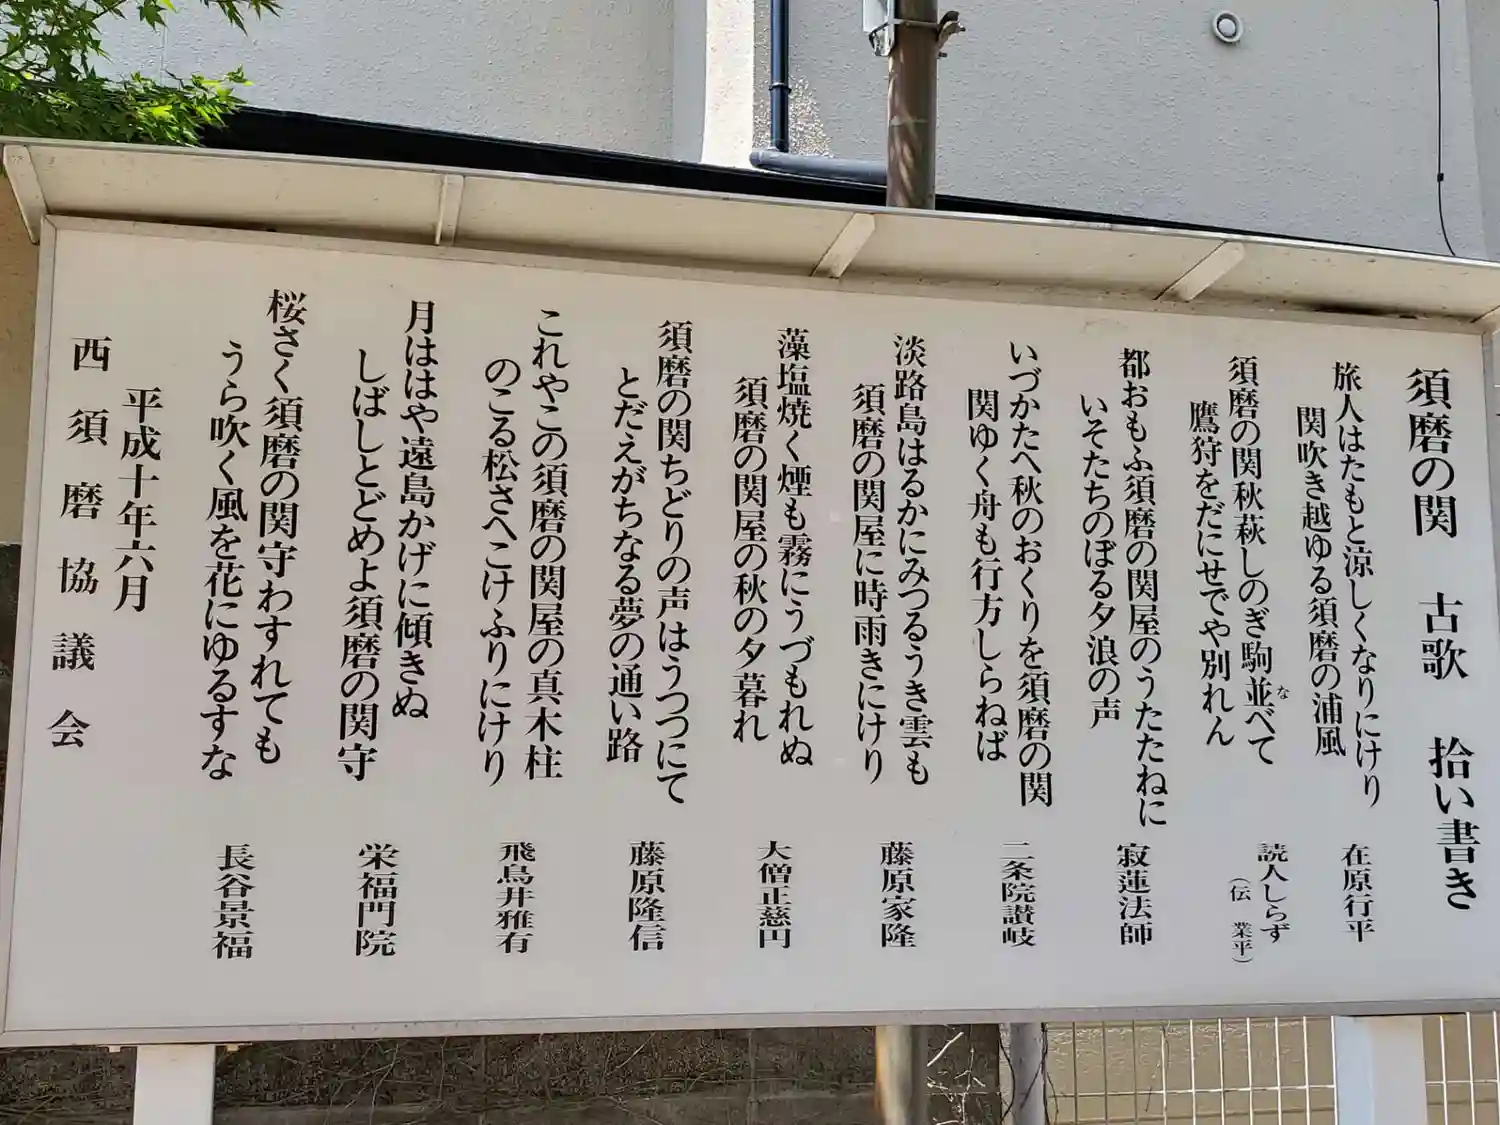 須磨の関　古歌　拾い書き
旅人はたもと涼しくなりにけり
関吹き越ゆる須磨の浦風
在原行平
須磨の関秋萩しのぎ駒並べて
な
鷹狩をだにせでや別れん
読人しらず
（伝　業平）
都おもふ須磨の関屋のうたたねに
いそたちのぼる夕浪の声
寂蓮法師
いづかたへ秋のおくりを須磨の関
関ゆく舟も行方しらねば
二条院讃岐
淡路島はるかにみつるうき雲も
須磨の関屋に時雨きにけり
藤原家隆
藻塩焼く煙も霧にうづもれぬ
須磨の関屋の秋の夕暮れ
大僧正慈円
須磨の関ちどりの声はうつつにて
とだえがちなる夢の通い路
藤原隆信
これやこの須磨の関屋の真木柱
のこる松さへこけふりにけり
飛鳥井雅有
月ははや遠島かげに傾きぬ
しばしとどめよ須磨の関守
栄福門院
桜さく須磨の関守わすれても
うら吹く風を花にゆるすな
長谷景福
平成十年六月
西須磨協議会